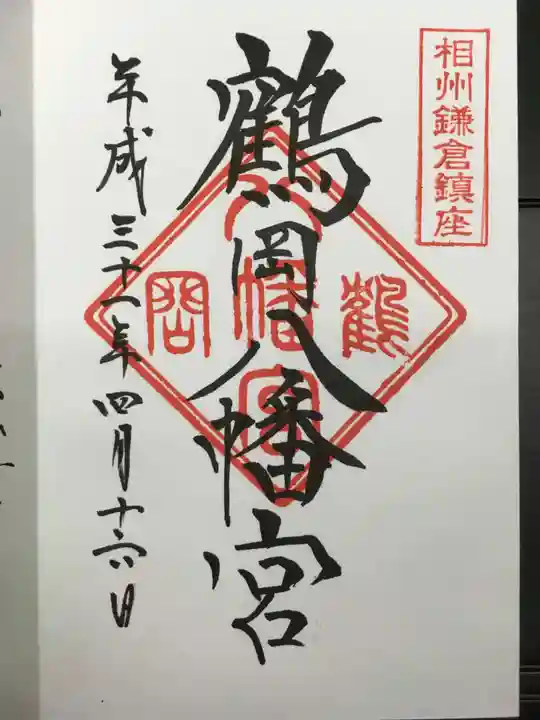 相州鎌倉鎮座
鶴岡八幡宮
鶴岡
八幡宮
平成三十一年四月十六日